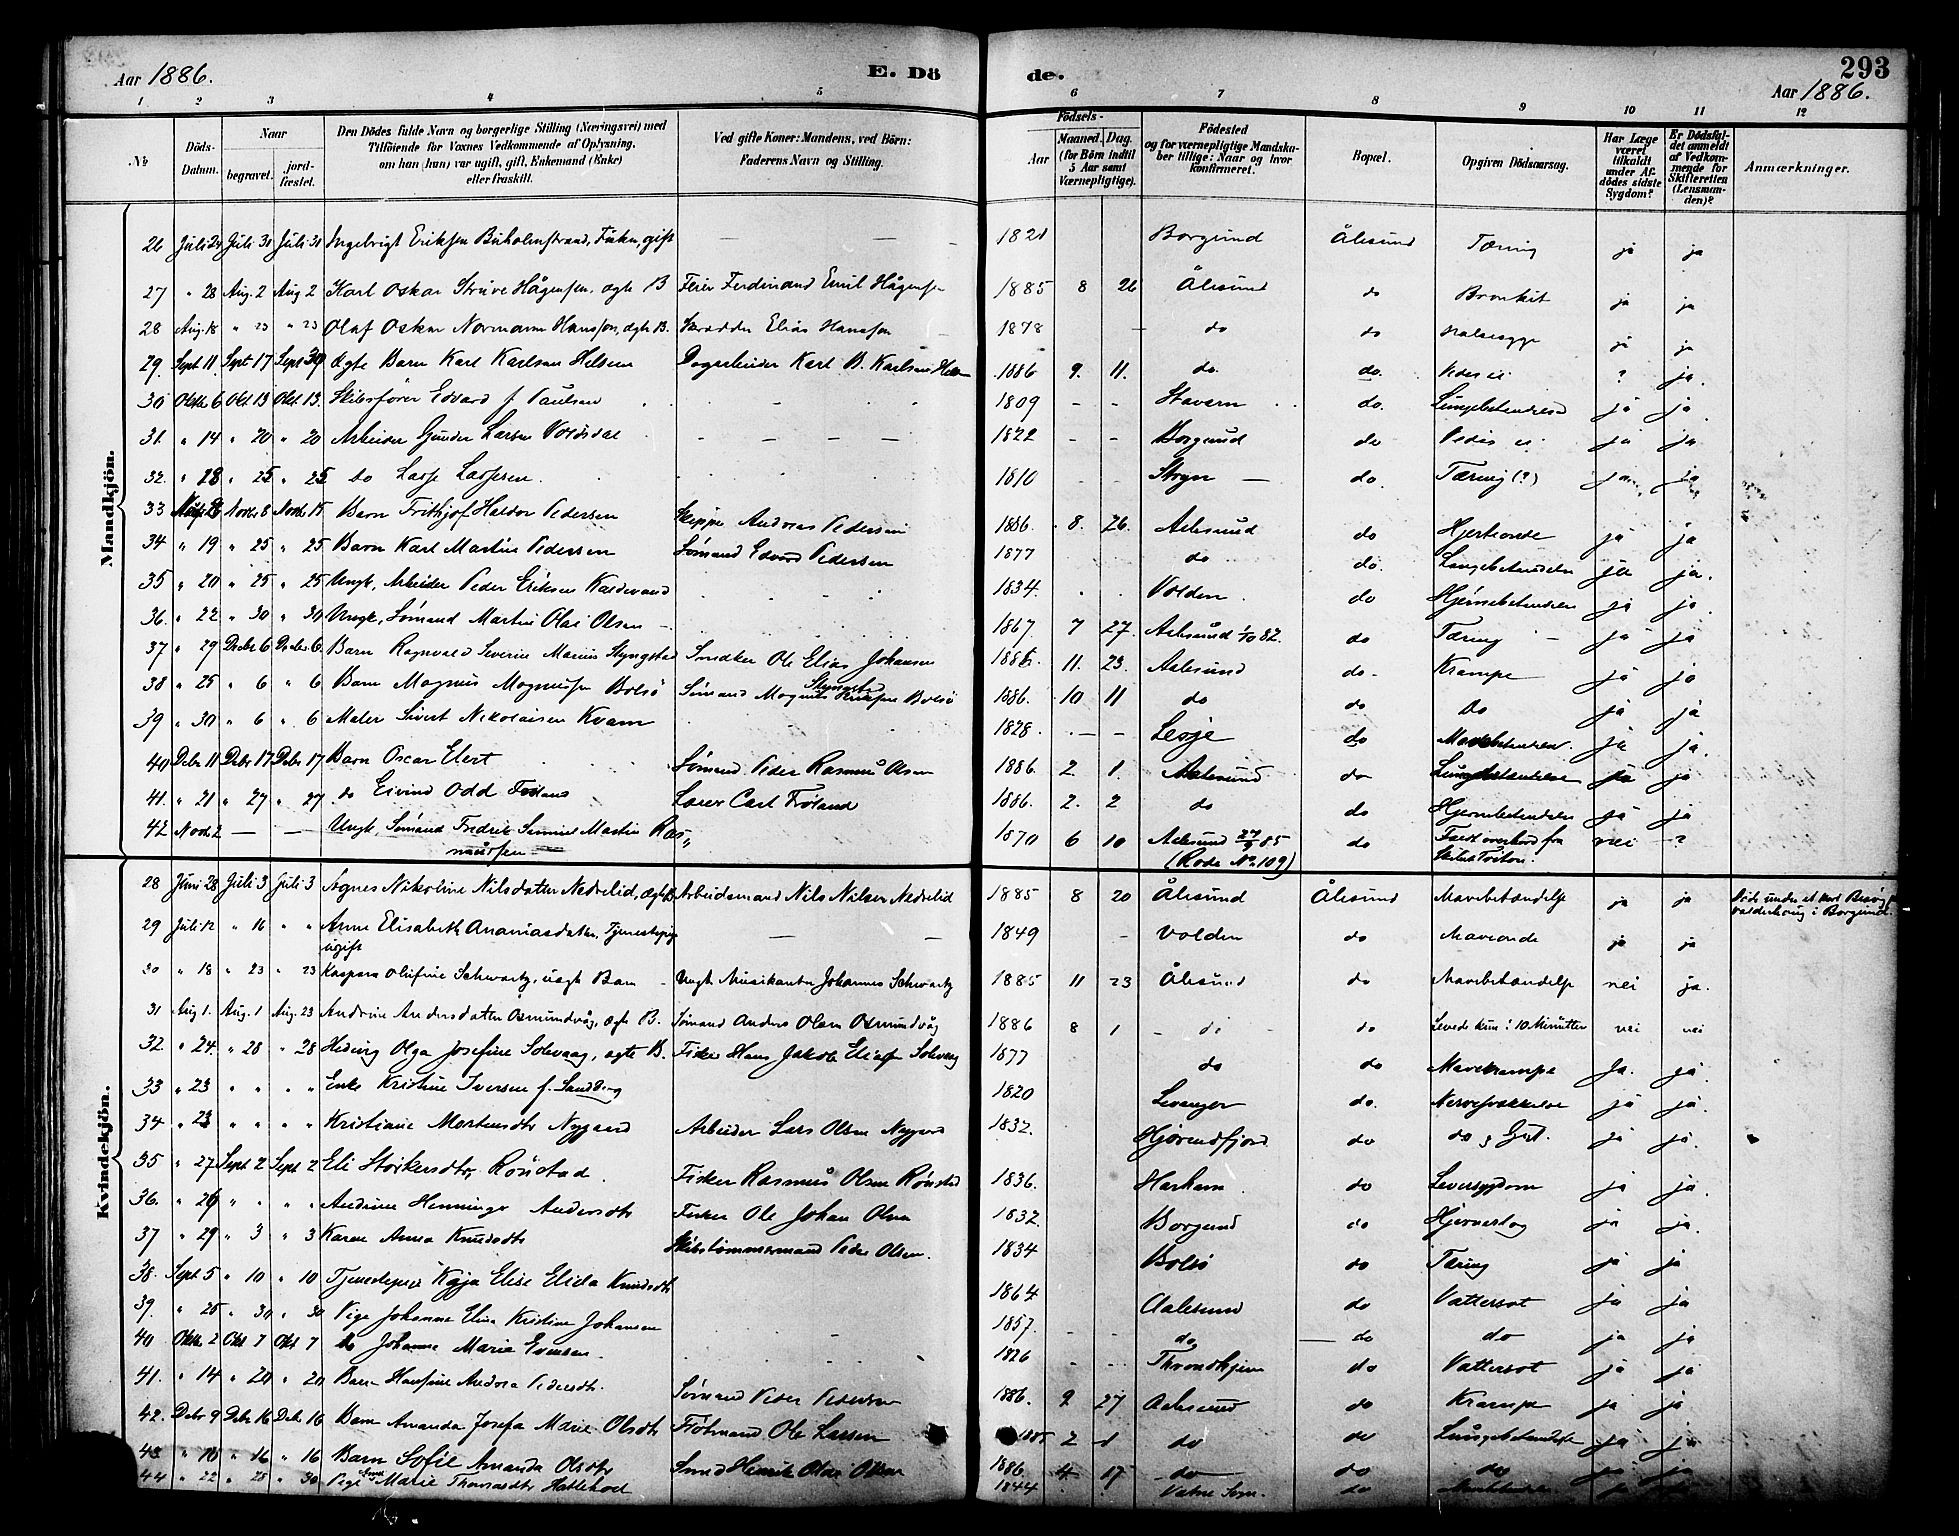 Aar 1886.
E. Dö
de.
293
Aar 1886.
1 2 3 4 5 6 7 8 9 10 11 12
No
Döds-Datum.
Naar
begravet.
jord-fæstet.
Den Dödes fulde Navn og borgerlige Stilling (Næringsvei) med
Tilföiende for Voxnes Vedkommende af Oplysning,
om han (hun) var ugift, gift, Enkemand (Enke)
eller fraskilt.
Ved gifte Koner: Mandens, ved Börn:
Faderens Navn og Stilling.
Födsels-
Aar
Maaned. Dag.
(for Börn indtil
5 Aar samt
Værnepligtige).
Födested
og for værnepligtige Mandska-
ber tillige: Naar og hvor
konfirmeret.
Bopæl.
Opgiven Dödsaarsag.
Har Læge
været
tilkaldt
under Af-
dödes sidste
Sygdom?
Er Dödsfal-
det anmeldt
af Vedkom-
mende for
Skifteretten
(Lensman-
den)?
Anmærkninger.
Mandkjön.
26 Juli 24 Juli 31 Juli 31 Ingebrigt Eriksen Buholmstrand, Fisker, gift — — 1821 Borgund Ålesund Tæring ja ja
27 " 28 Aug. 2 Aug 2 Karl Oskar Strüve Hågensen, ægte B Feier Ferdinand Emil Hågensen 1885 8 26 Ålesund do Bronkit ja ja
28 Aug. 18 " 23 " 23 Olaf Oskar Normann Hansson, ægte B. Skrædder Elias Hansson 1878 — do do Halssyge ja ja
29. Sept 11 Sept 17 Sept 30 Ægte Barn Karl Karlsen Helsem Dagarbeider Karl B. Karlsen 1886 9. 11. do. do. Vides ei ? ja.
30 Oktbr 6 Okt 13 Okt. 13. Skibsfører Edvard J. Paulsen 1809 - - Stavern do. Lungebetændelse ja ja
31. " 14 " 20 " 20 Arbeider Gunder Larsen Voldsdal - - - 1822 - - Borgund do Vides ei ja ja
32. " 28 " 25 " 25 do Lasse Lassesen 1810 Stryn — do. Tæring (?) ja ja
33 " Novbr 8 Novbr 15 Barn Frithjof Haldor Pedersen Skipper Andreas Pedersen 1886 8. 26. Aalesund do Hjerteonde ja ja
34 " 19 " 25 " 25 Barn Karl Martin Pedersen Sømand Edvard Pedersen 1877 do do. Lungebetændelse ja ja.
35 " 20 " 25 " 25 Ungk. Arbeider Peder Eriksen Kaldevand 1834. Volden do Hjernebetændelse ja ja
36. " 22 " 30 " 30 Ungk. Sømand Martin Olai Olsen — 1867 7 27. Aalesund 1/10 82. do Tæring ja ja
37 " 29 Decbr 6 Decbr 6 Barn Ragnvald Severin Marius Slyngstad Snedker Ole Elias Johansen Slyngstad 1886. 11. 23. Aalesund do. Krampe ja ja
38 " 25 " 6 " 6 Barn Magnus Magnussen Bolsø Sømand Magnus Eriksen Bolsø 1886. 10 11 do do Do ja ja
39 " 30 " 6 " 6 Maler Sivert Nikolaisen Kvam 1828. - - Lesje do Mavebetændelse. ja ja.
40 Debr 11 Debr 17 Debr 17 Barn Oscar Elert Sømand Peder Rasmus Olsen 1886 2. 1. Aalesund do Lungebetændelse ja ja
41. " 21 " 27 " 27 do Eivind Odd Frøland Lærer Carl Frøland 1886. 2. 2 do do Hjernebetændelse ja ja
42 Novbr 2 — — Ungk. Sømand Fredrik Samuel Martin Ras-
mussen — 1870 6 10 Aalesund 27/9 85
(Rode No. 109) do Faldt overbord fra
Skibet Triton. nei ?
Kvindekjön.
28 Juni 28 Juli 3 Juli 3 Agnes Nikoline Nilsdatter Nedrelid, ægte B. Arbeidsmand Nils Nilsen Nedrelid 1885 8 20 Ålesund Ålesund Mavebetændelse ja ja Døde under et kort Besøg på
Valderhoug i Borgund.
29 Juli 12 " 16 " " Anne Elisabeth Ananiasdatter, Tjenestepige
ugift — — 1849 - Volden do Maveonde ja ja
30 " 18 " 23 " 23 Kaspara Olufine Schwartz, uægte Barn Ungk. Musikanten Johannes Schwartz 1885 11 23 Ålesund do Mavebetændelse nei ja.
31 Aug 1. Aug. 1 Aug. 23 Andrine Andersdatter Osmundvåg, ægte B. Sømand Anders Olsen Osmundvåg 1886 8 1 - do - do Levede kun i 10 Minutter nei nei
32. " 24. " 28 " 28 Hedvig Olga Josefine Solevaag, ægte B. Fisker Hans Jakob Eliassen Solevaag 1877 do do Mavekrampe Ja. ja.
33 " 23 " " " Enke Kristine Iversen f. Sandberg 1820 Levanger do. Nervesvækkelse ja ja.
34 " 23 " " " Kristiane Mortensdtr Nygaard Arbeider Lars Olsen Nygaard 1832. Hjørendfjord do do, Gigt. ja ja.
35 " 27 Sept 2 Sept 2 Eli Størkersdtr, Rønstad Fisker Rasmus Olsen Rønstad 1836. Harham do Leversygdom ja ja.
36. " 26 " " " Andrine Henninge Andersdtr Fisker Ole Johan Olsen 1832. Borgund do Hjerneslag ja ja.
37 " 29 " 3 " 3 Karen Anna Knudsdtr Skibstømmermand Peder Olsen. 1834 Bolsø do Tæring ja ja
38. Sept 5 " 10 " 10 Tjenestepige Kaja Elise Elida Knudsdtr 1864 Aalesund do Vattersot ja ja
39. " 25 " 30 " 30 Pige Johanne Elina Kristine Johansen 1857. - - do — do do ja ja
40 Oktbr 2 Okt 7 Okt 7 do Johanne Marie Evensen. 1826 - - Throndhjem do Vattersot ja ja
41. " 14 " 20 " 20 Barn Hansine Andrea Pedersdtr. Sømand Peder Pedersen 1886. 9 27 Aalesund do Krampe ja ja
42. Debr 9 Debr 16 Debr 16 Barn Amanda Josefa Marie Olsdtr Fløtmand Ole Larsen 2 1 do do Lungebetændelse ja ja
43 " 10 " 16 " 16 Barn Sofie Amanda Olsdtr Smed Henrik Olai Olsen 1886. 4 17 do do do ja ja
44 " 22 " 28 " 30 Pige Marie Thomasdtr Hatlehol 1844 Vatne Sogn. do